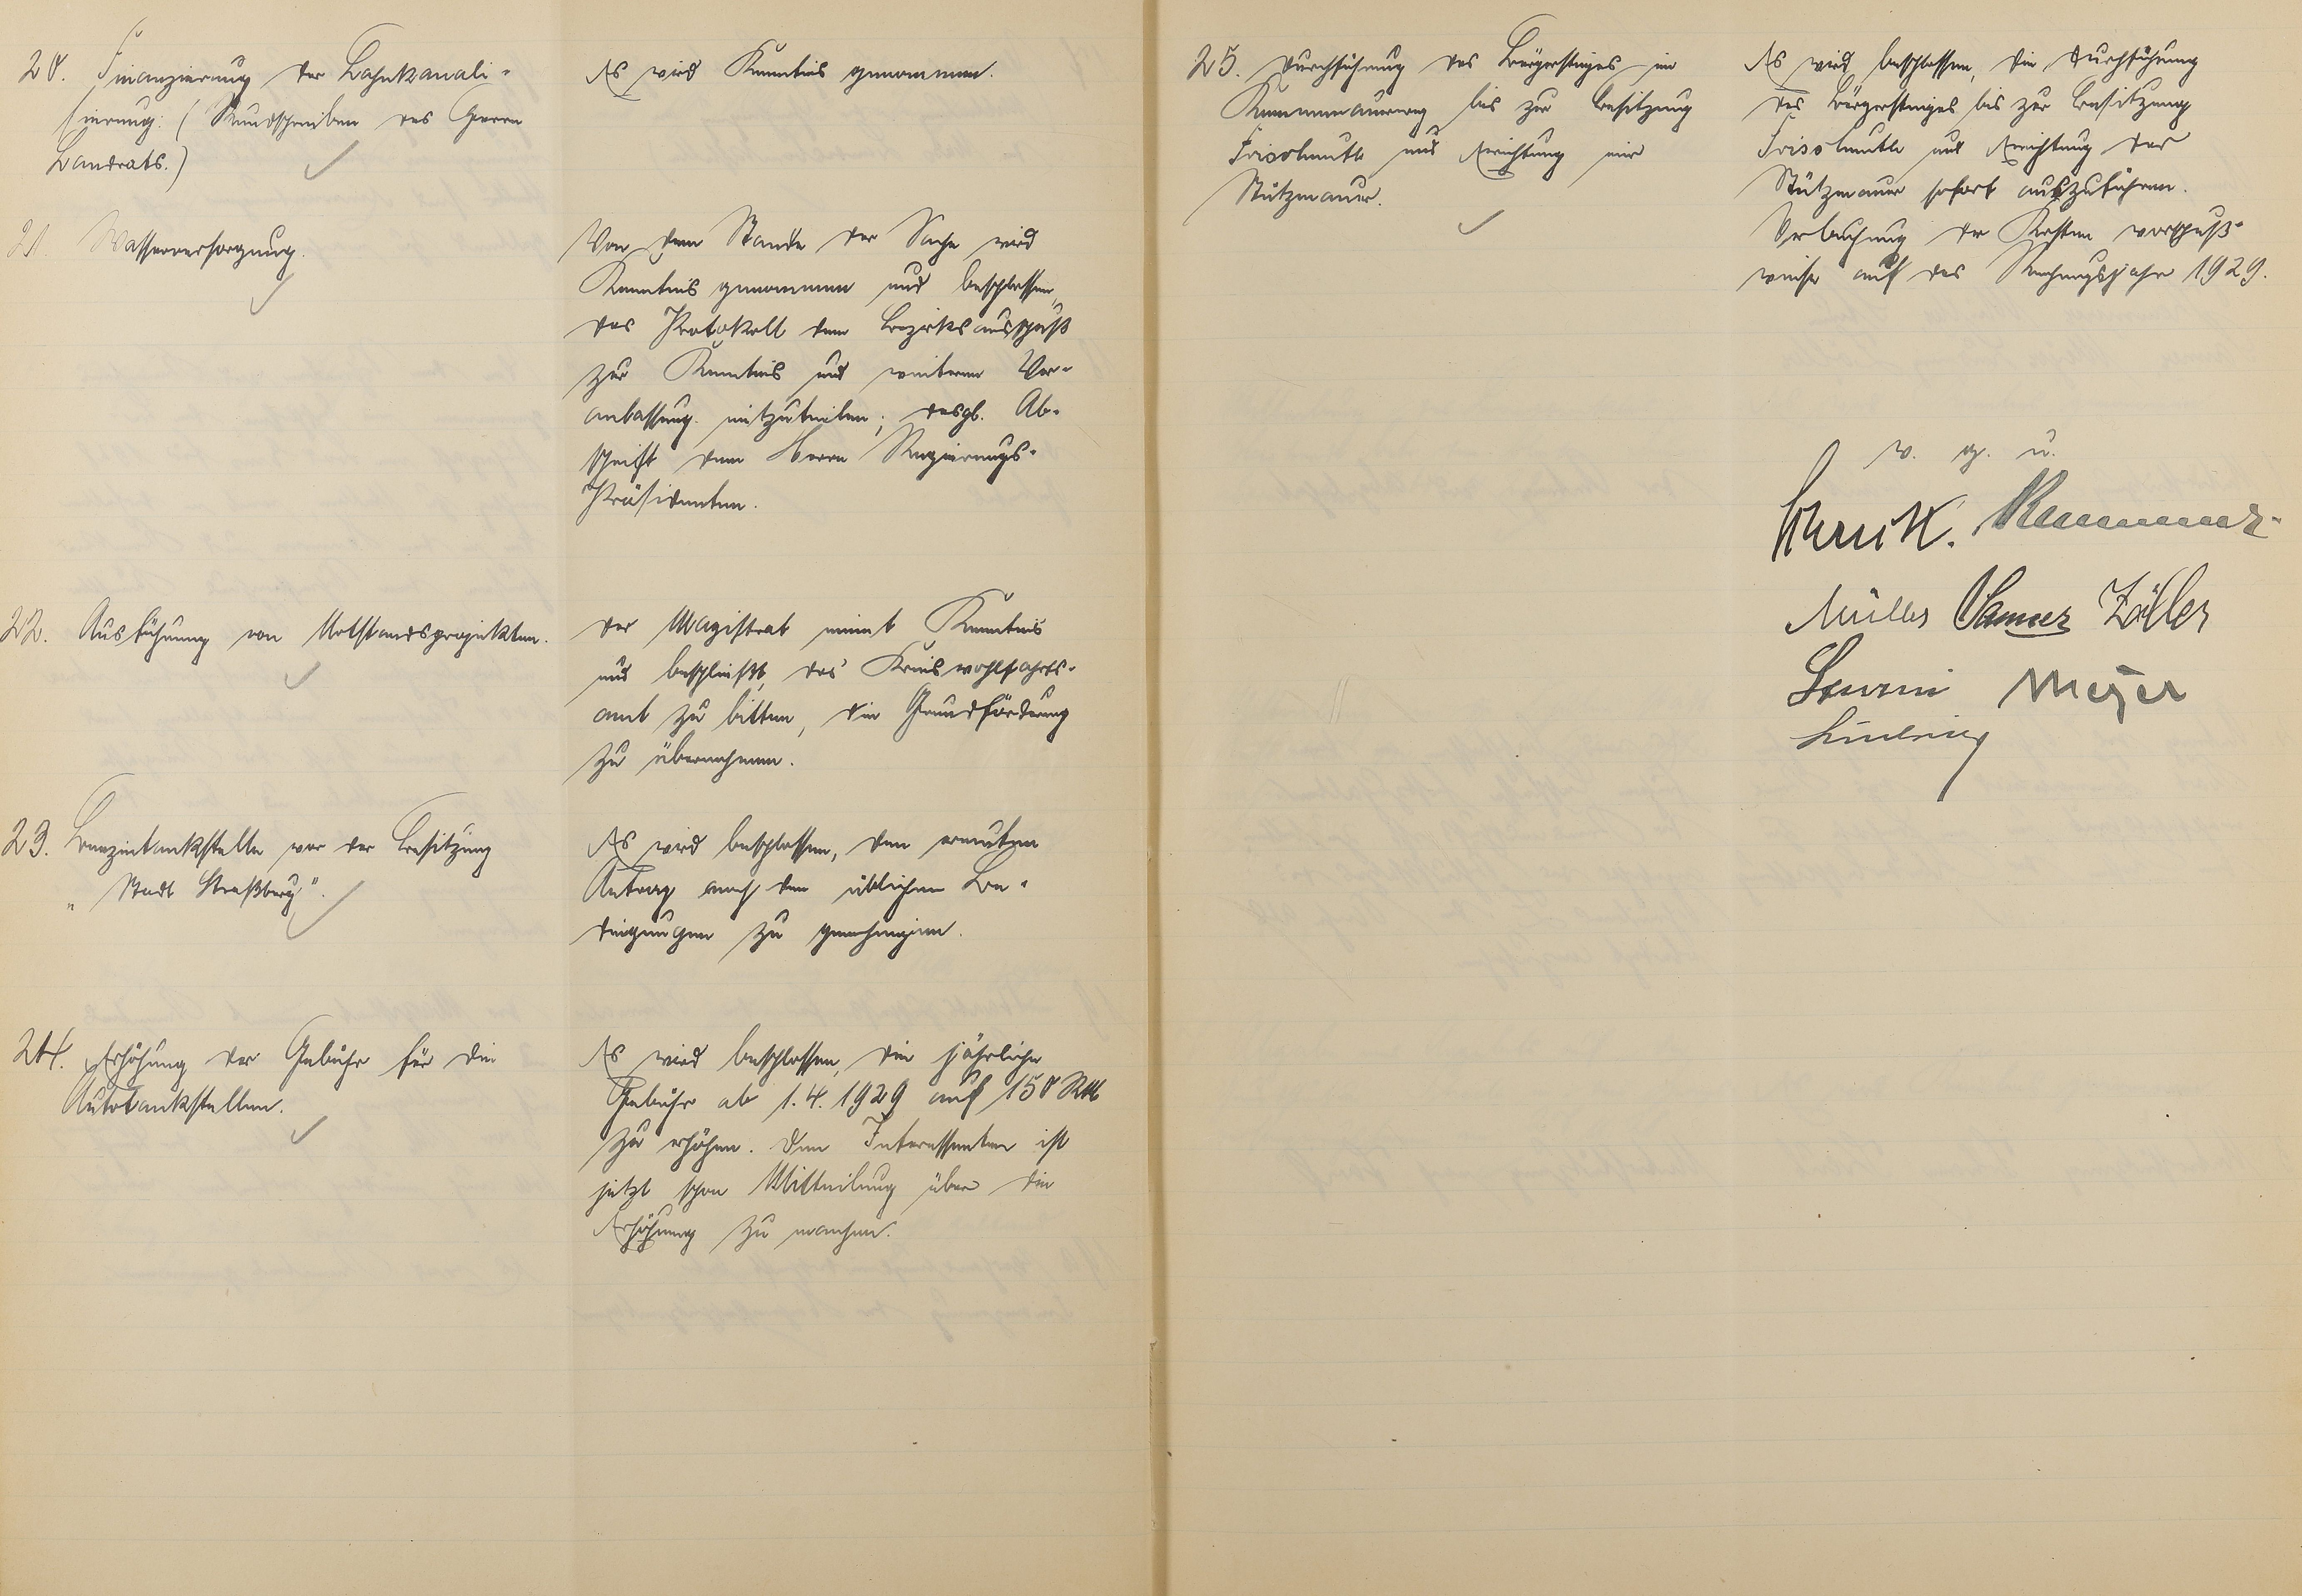 20. Finanzierung der Lahnkanali-
sierung. (Rundschreiben des Herrn
Landrats.)
Es wird Kenntnis genommen.
21. Wasserversorgung.
Von dem Stande der Sache wird
Kenntnis genommen und beschlossen,
das Protokoll dem Bezirksausschuß
zur Kenntnis und weiteren Ver-
anlassung mitzuteilen; desgl. Ab-
schrift dem Herrn Regierungs-
Präsidenten.
22. Ausführung von Notstandsprojekten.
Der Magistrat nimmt Kenntnis
und beschließt, das Kreiswohlfahrts-
amt zu bitten, die Grundförderung
zu übernehmen.
23. Benzintankstelle vor der Besitzung
„Stadt Straßburg".
Es wird beschlossen, den erneuten
Antrag nach den üblichen Be-
dingungen zu genehmigen.
24. Erhöhung der Gebühr für die
Autotankstellen.
Es wird beschlossen, die jährliche
Gebühr ab 1.4.1929 auf 150 RM
zu erhöhen. Den Interessenten ist
jetzt schon Mitteilung über die
Erhöhung zu machen.
25. Durchführung des Bürgersteiges im
bis zur Besitzung
und Errichtung einer
Stützmauer.
Es wird beschlossen, die Durchführung
des Bürgersteiges bis zur Besitzung
und Errichtung der
Stützmauer sofort auszuführen.
Verbuchung der Kosten vorschuß-
weise auf das Rechnungsjahr 1929.
v. g. u.
Müller Zöller
Meyer